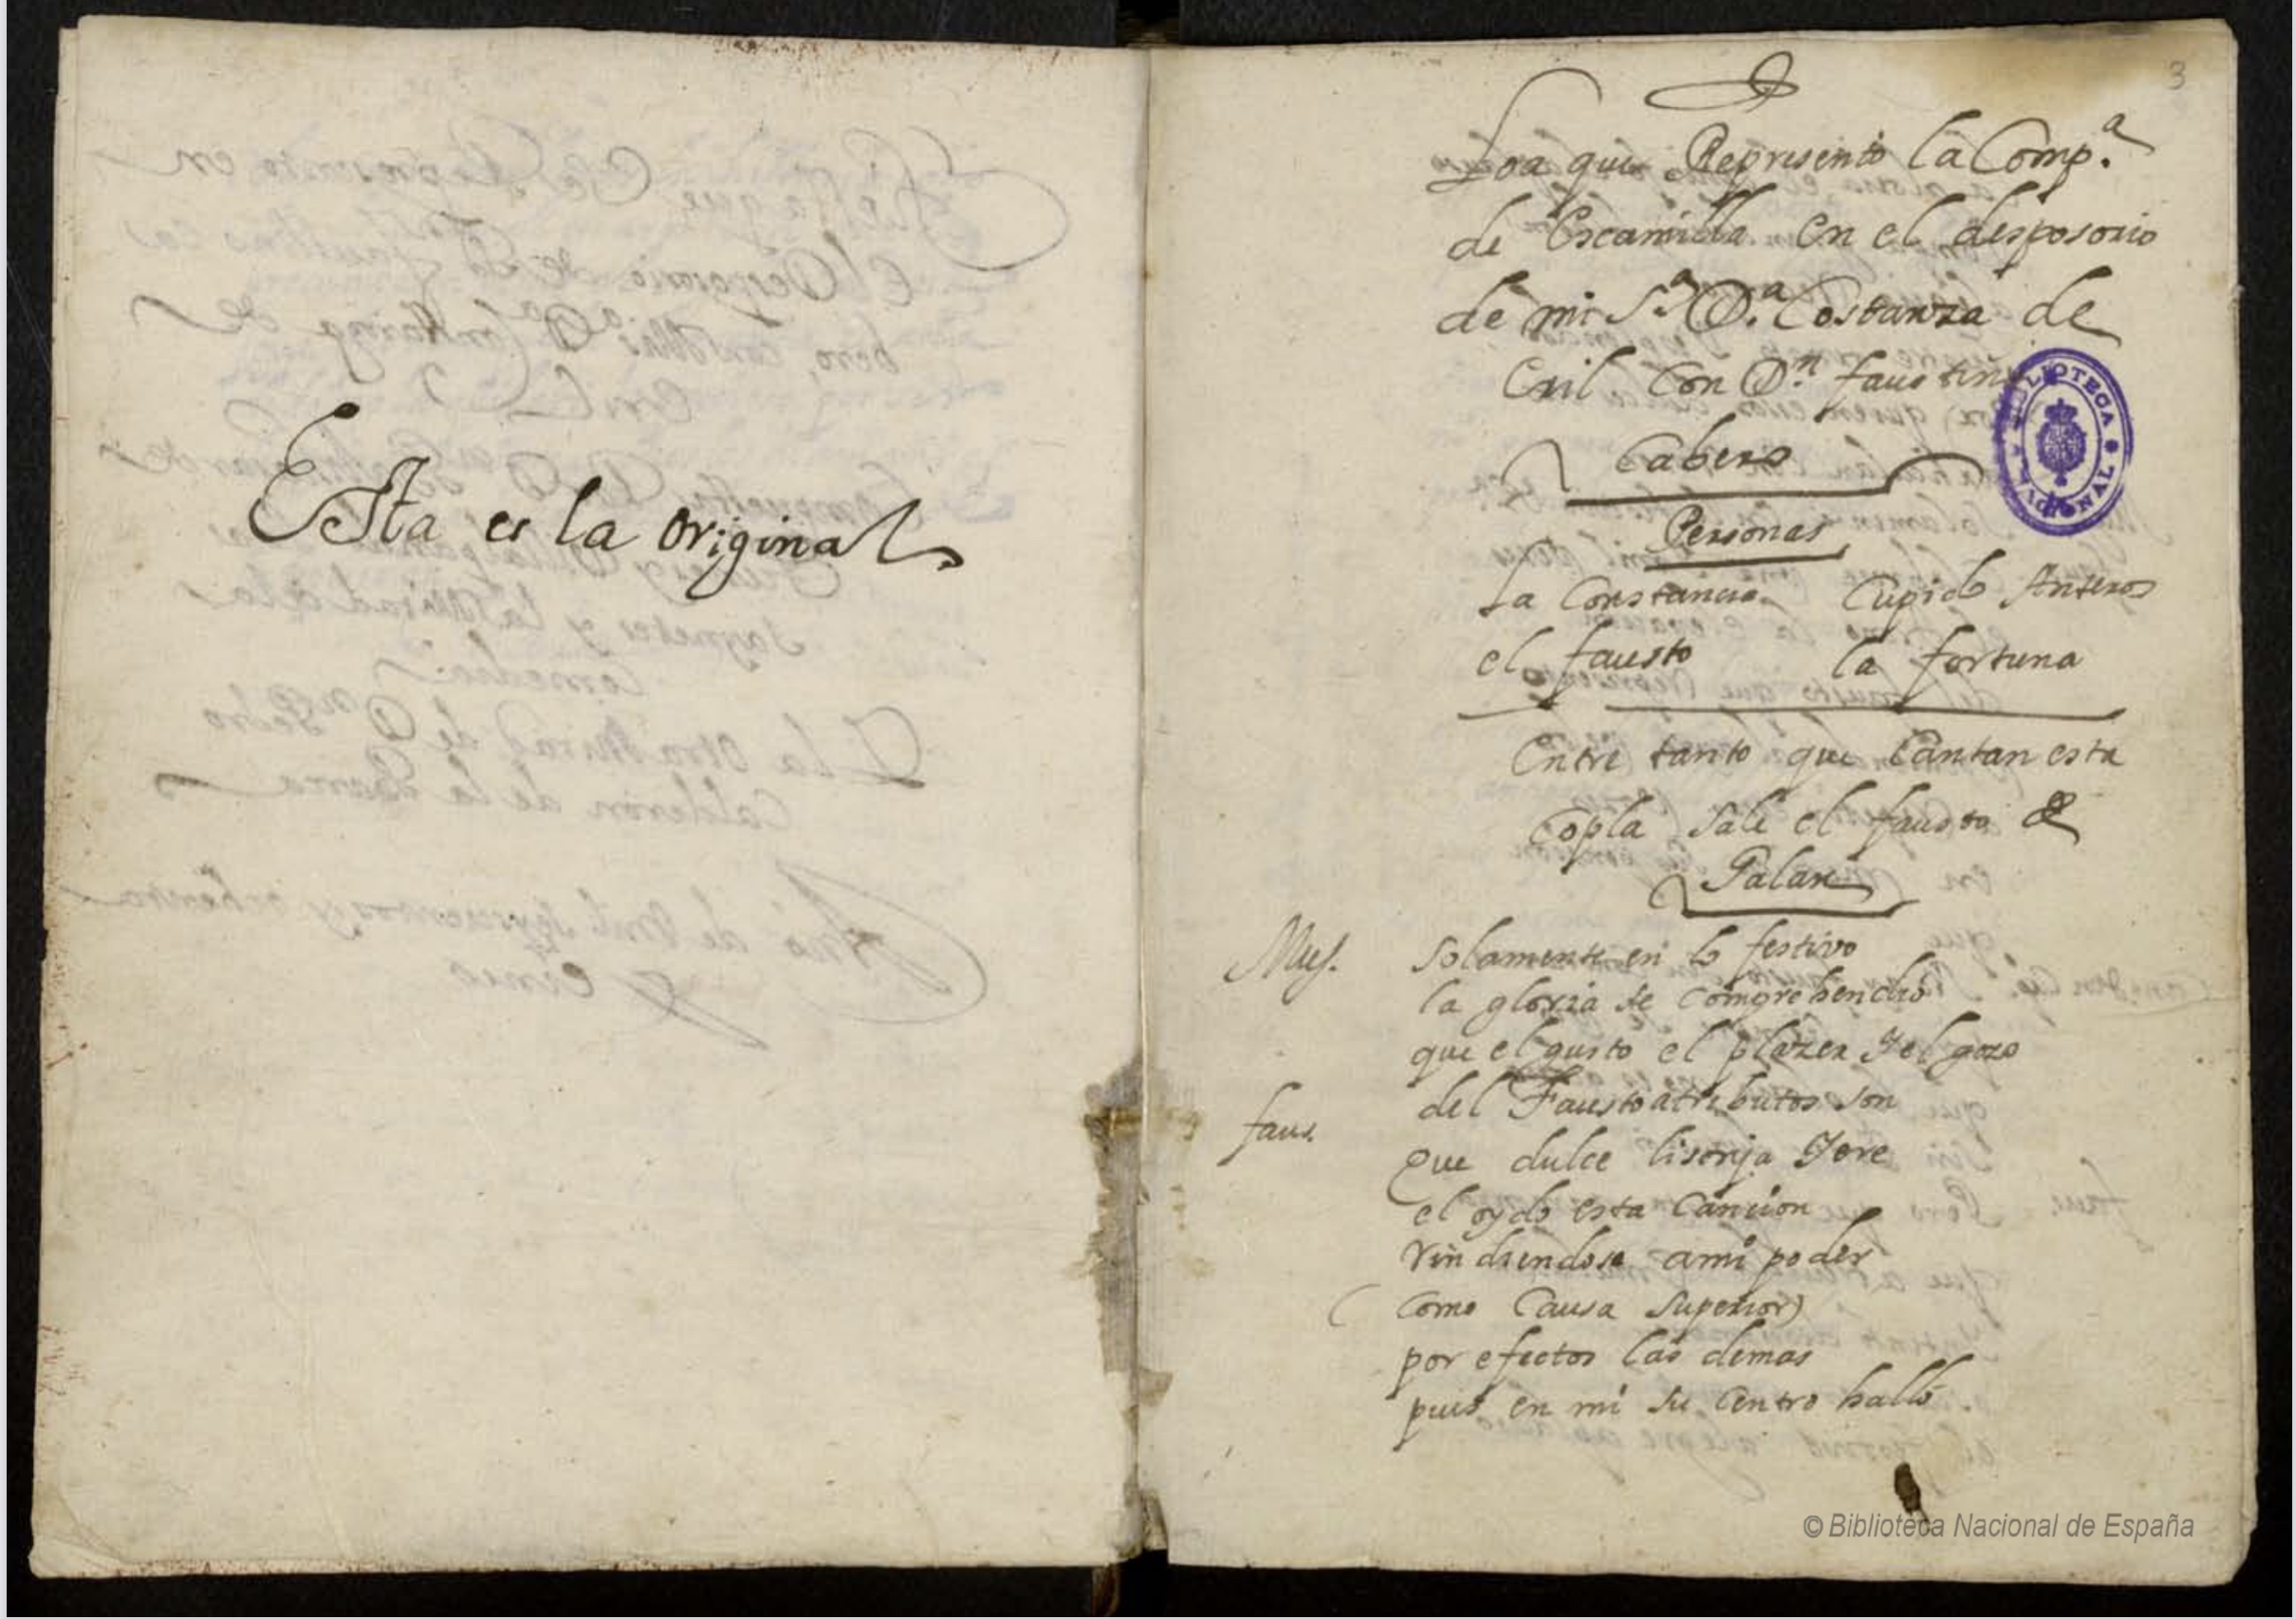 Esta es la original
3
Loa que Represento la Comp.ª
de Escamilla en el desposorio
de mi S.ª D.ª Costanza de
Eril Con D.n faustino
Cabero
Personas
La Constancia Cupido Anteros
el fausto la fortuna
Entre tanto que Cantan esta
Copla sale el fausto de
Galan
Mus. Solamente en lo festivo
la gloria se comprehendio
que el gusto el plazer Y el gozo
del Fausto atributos son
faus. Que dulce lisonja Yere
el oydo esta Cancion
rindiendose a mi poder
(como Causa Superior)
por efectos las demas
pues en mi su Centro halló.
BIBLIOTECA NACIONAL
© Biblioteca Nacional de España